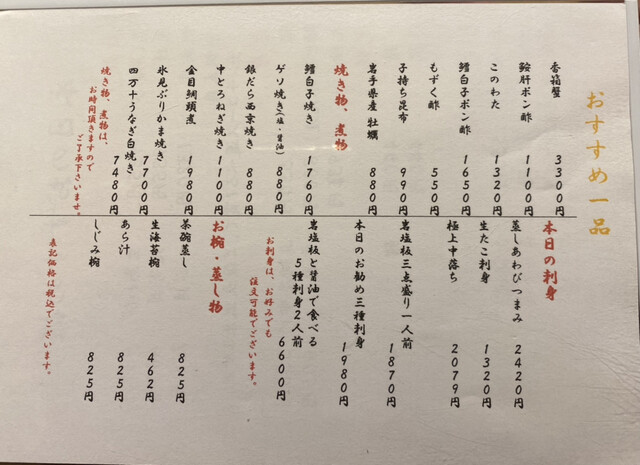 おすすめ一品
香箱蟹 3300円
鮟肝ポン酢 1100円
このわた 1320円
鱈白子ポン酢 1650円
もずく酢 550円
子持ち昆布 990円
岩手県産 牡蠣 880円
焼き物、煮物
鱈白子焼き 1760円
ゲソ焼き(塩・醤油) 880円
銀だら西京焼き 880円
中とろねぎ焼き 1100円
金目鯛頭煮 1980円
氷見ぶりかま焼き 7700円
四万十うなぎ白焼き 7480円
焼き物、煮物は、
お時間頂きますので
ご了承下さいませ。
本日の刺身
蒸しあわびつまみ 2420円
生たこ刺身 1320円
極上中落ち 2079円
岩塩板三点盛り一人前 1870円
本日のお勧め三種刺身 1980円
岩塩板と醤油で食べる
5種刺身2人前 6600円
お刺身は、お好みでも
注文可能でございます。
お椀・蒸し物
茶碗蒸し 825円
生海苔椀 462円
あら汁 825円
しじみ椀 825円
表記価格は税込でございます。